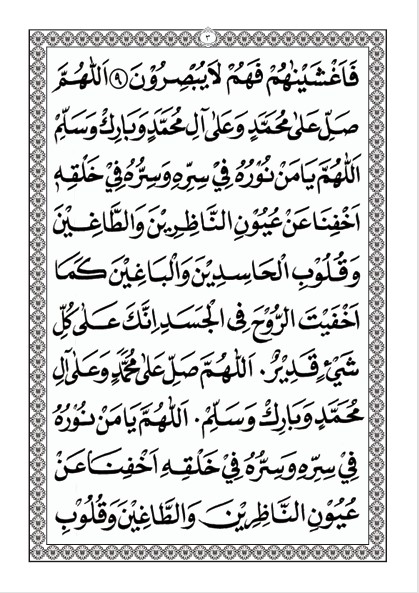 ٣
فَاَغْشَيْنٰهُمْ فَهُمْ لَا يُبْصِرُوْنَ ﴿٩﴾ اَللّٰهُمَّ
صَلِّ عَلٰى مُحَمَّدٍ وَعَلٰى آلِ مُحَمَّدٍ وَبَارِكْ وَسَلِّمْ
اَللّٰهُمَّ يَا مَنْ نُوْرُهُ فِيْ سِرِّهِ وَسِرُّهُ فِيْ خَلْقِهِ
اَخْفِنَا عَنْ عُيُوْنِ النَّاظِرِيْنَ وَالطَّاغِيْنَ
وَقُلُوْبِ الْحَاسِدِيْنَ وَالْبَاغِيْنَ كَمَا
اَخْفَيْتَ الرُّوْحَ فِى الْجَسَدِ اِنَّكَ عَلٰى كُلِّ
شَيْءٍ قَدِيْرٌ. اَللّٰهُمَّ صَلِّ عَلٰى مُحَمَّدٍ وَعَلٰى آلِ
مُحَمَّدٍ وَبَارِكْ وَسَلِّمْ. اَللّٰهُمَّ يَا مَنْ نُوْرُهُ
فِيْ سِرِّهِ وَسِرُّهُ فِيْ خَلْقِهِ اَخْفِنَا عَنْ
عُيُوْنِ النَّاظِرِيْنَ وَالطَّاغِيْنَ وَقُلُوْبِ